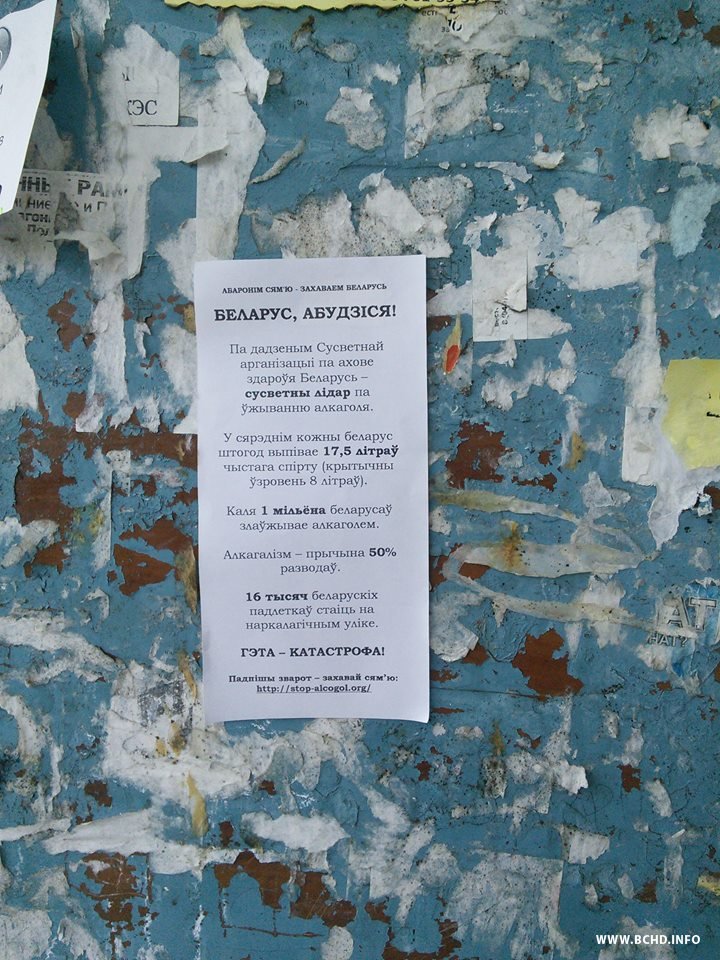 КЭС
РАМ
АБАРОНІМ СЯМ'Ю - ЗАХАВАЕМ БЕЛАРУСЬ
БЕЛАРУС, АБУДЗІСЯ!
Па дадзеным Сусветнай
арганізацыі па ахове
здароўя Беларусь –
сусветны лідар па
ўжыванню алкаголя.
У сярэднім кожны беларус
штогод выпівае 17,5 літраў
чыстага спірту (крытычны
ўзровень 8 літраў).
Каля 1 мільёна беларусаў
злаўжывае алкаголем.
Алкагалізм – прычына 50%
разводаў.
16 тысяч беларускіх
падлеткаў стаіць на
наркалагічным уліке.
ГЭТА – КАТАСТРОФА!
Падпішы зварот – захавай сям'ю:
http://stop-alcogol.org/
WWW.BCHD.INFO